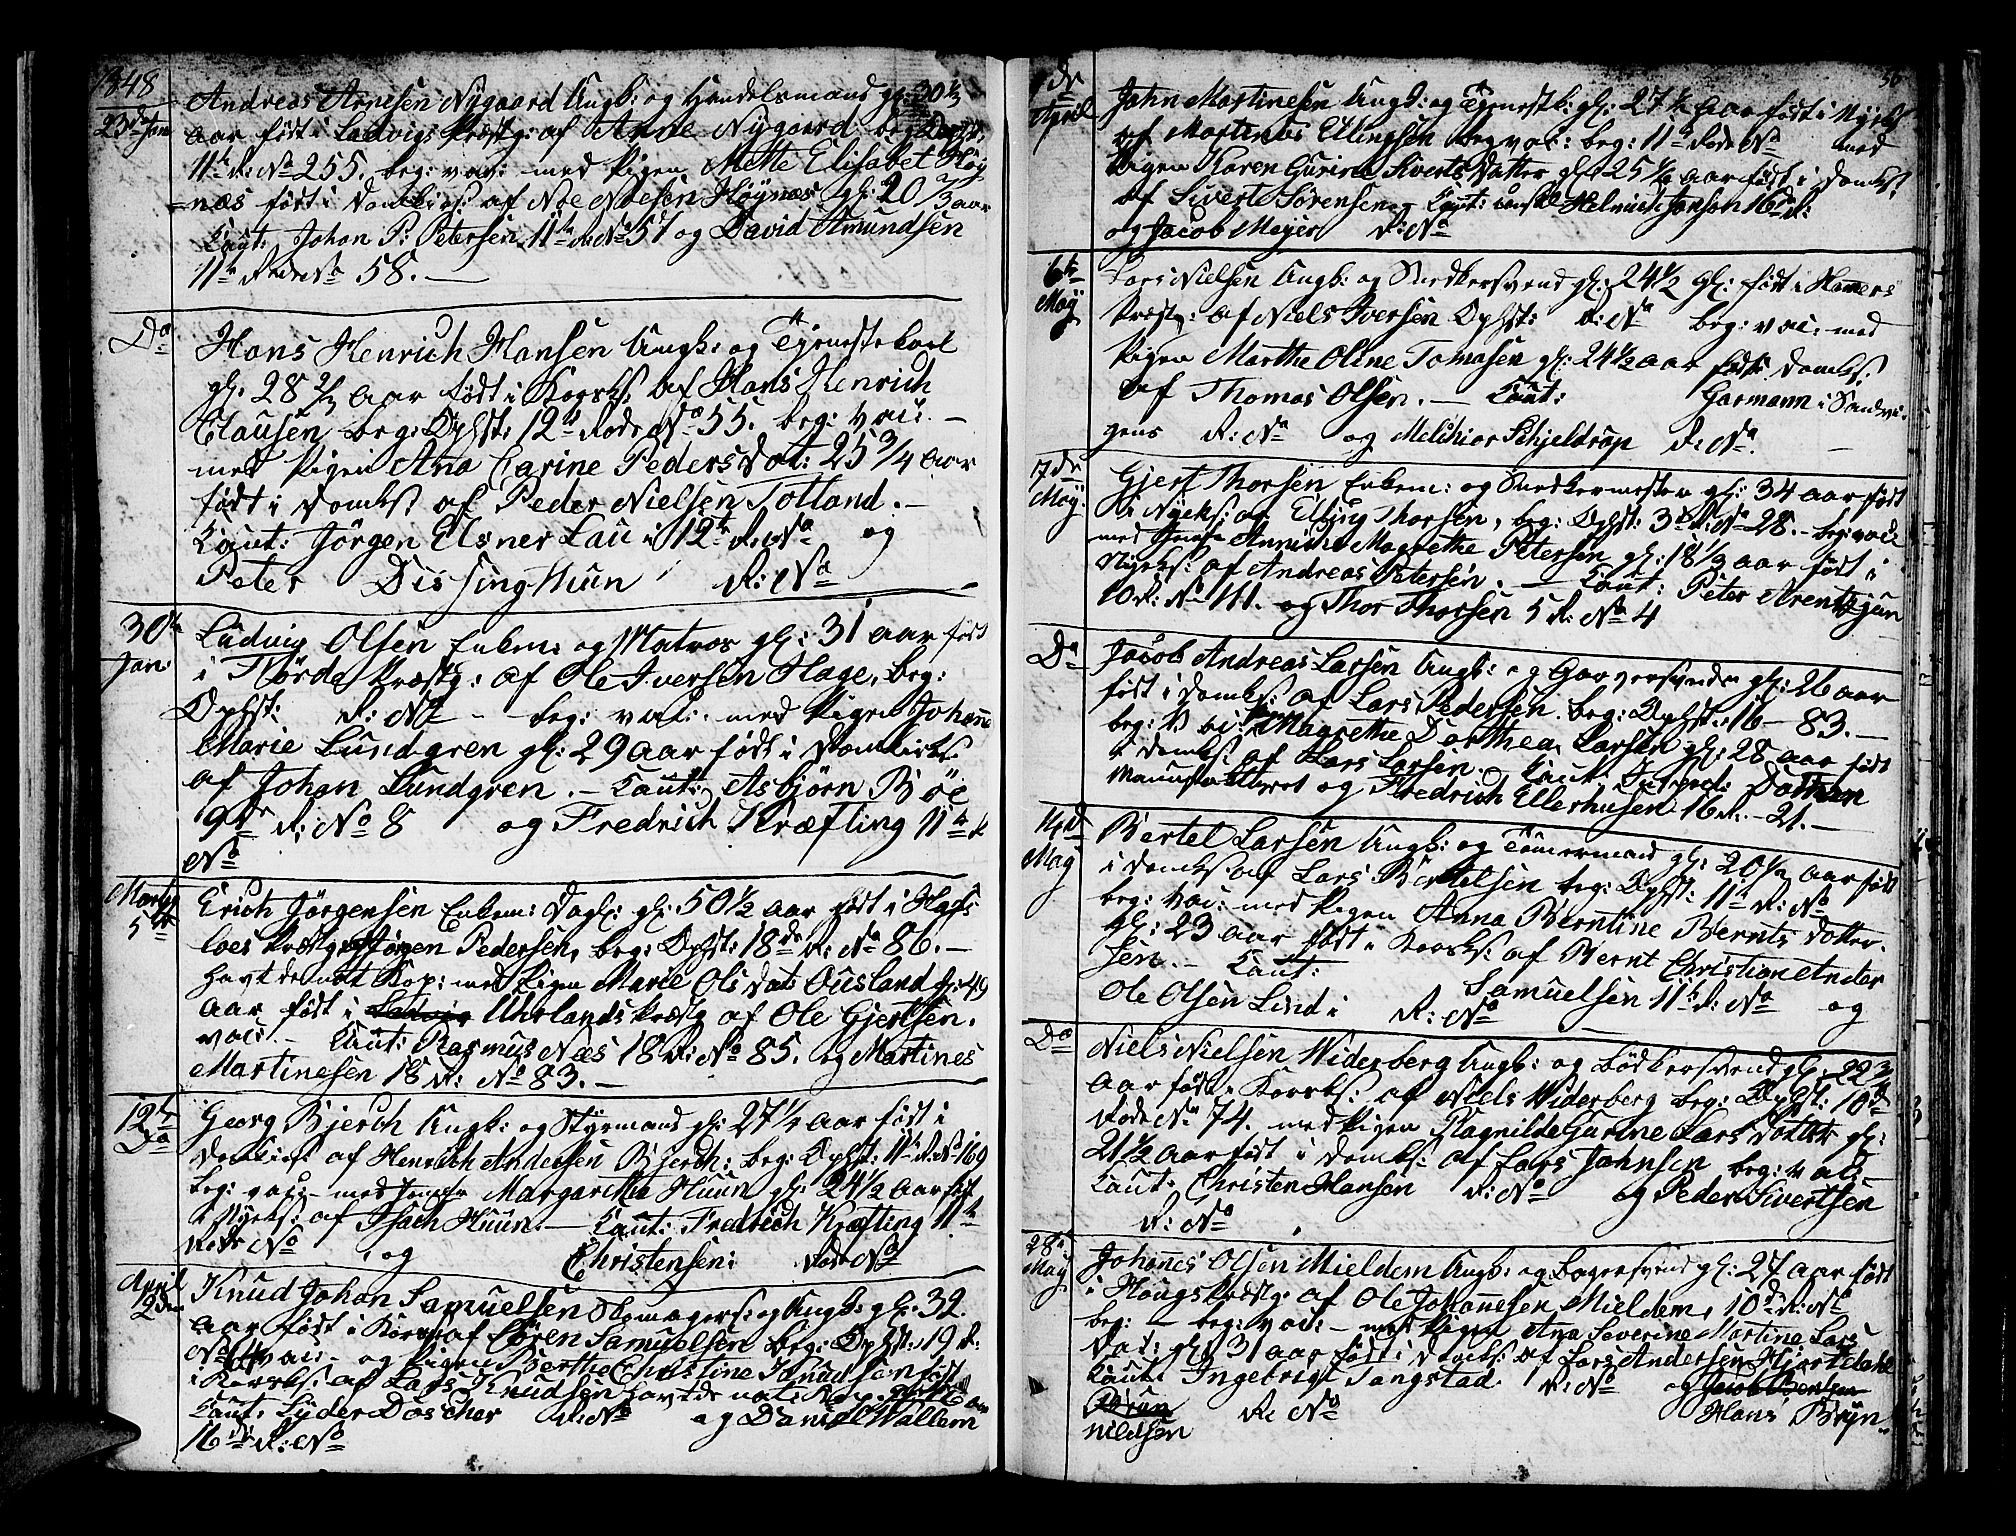 1848
23de Jan
Andreas Arnesen Nygaard Ungk: og Handelsmand gl: 30 1/3
aar født i Ladvigs Præstg: af Arne Nygaard beg: Ophst:
11te R: No 255. beg: vac: med Pigen Mette Elisabet Høy
=næs født i Domkirks: af Noe Noesen Høynæs gl: 20 2/3 aar
Caut: Johan P: Petersen 11te R: No 57 og David Amundsen
11te Rode No 58. —
Do
Hans Henrich Hansen Ungk: og Tjenestekarl
gl: 28 2/3 Aar født i Korsks: af Hans Henrich
Clausen beg: Ophst: 12te Rode No 55. beg: vac: —
med Pigen Ana Carine Peders Dat: 25 3/4 Aar
født i Domks af Peder Nielsen Totland. —
Caut: Jørgen Elsner Lau i 12te R: No og
Peter Dissing Huun R: No —
30te Jan:
Ludvig Olsen Enkem: og Matros gl: 31 aar født
i Førde Præstg: af Ole Iversen Hage, beg:
Ophst: R: No - beg: vac: med Pigen Johane
Marie Lundgren gl: 29 aar født i Domkirks
af Johan Lundgren. — Caut: Asbjørn Bøe
9de R: No 8 og Fredrich Kræfting 11te R
No
Martz 5te
Erich Jørgensen Enkem: Dagl: gl: 50 1/2 aar født i Hafs
loes Præstg af Jørgen Pedersen, beg: Ophst: 18de R: No 86. —
Havt den nat: Kop: med Pigen Marie Ols Dat: Ousland gl: 49
Aar født i Uhrlands Præstg af Ole Gjertsen.
vac: — Caut: Rasmus Næs 18 R: No 85. og Martines
Martinesen 18 R: No 83. —
12te Do
Georg Bjerch Ungk: og Styrmand gl: 27 1/2 aar født i
Domkirks af Henrich Andersen Bjerch: beg: Ophst: 11te R: No 169
beg: vac: — med Jomfr Margarethe Huun gl: 24 1/2 aar født
i Nyeks: af Isach Huun. — Caut: Fredrich Kræfting 11te
Rode No , og Christensen: Rode No
April 2den
Knud Johan Samuelsen Skomagers: og Ungk: gl: 32
aar født i Korsk af Søren Samuelsen beg: Ophst: 19 R:
No vac: — og Pigen Berthe Christine Knudsen født
i Korsks: af Lars Knudsen havt de nat: Kop.
Caut: Lyder Doscher R: No og Daniel Wallem
16de R: No
56
April
John Martinesen Ungk: og Tjenestk: gl: 27 1/2 Aar født i Nyeks
af Martinus Ellingsen beg vac: beg: 11te Rode No med
Pigen Karen Gurine Siverts Datter gl: 25 1/2 Aar født i Domks
af Sivert Sørensen. Caut: Helmich Janson 16de R:
og Jacob Meyer R: No
6te May
Lars Nielsen Ungk: og Snedkersvend gl: 24 1/2 gl: født i Hamers
Præstg: af Niels Iversen Ophst: R: No beg: vac: med
Pigen Marthe Oline Tomasen gl: 24 1/2 aar født Domks:
af Thomas Olsen. — Caut: Garmann i Sandvi-
gens R: No og Melchior Schjeldrop R: No. —
17de May.
Gjert Thorsen Enkem: og Snedkermester gl: 34 aar født
i Nyeks: af Elling Thorsen, beg: Ophst: 3de R: No 28. — beg: vac:
med Jomfr Annichen Magrethe Petersen gl: 18 1/3 aar født i
Nyeks: af Andreas Petersen. — Caut: Peter Arentz
10 R: No 111. og Thor Thorsen 5 R: No 4
Do
Jacob Andreas Larsen Ungk: og Garversvend gl: 26 aar
født i Domks: af Lars Pedersen. beg: Ophst: 16 — 83. —
beg: vac: Magrethe Dorthea Larsen gl: 28 aar født
i Domks: af Lars Larsen. Caut: Dothan
og Fredrich Ellerhusen 16 R. — 21. —
14de May
Bertel Larsen Ungk: og Tømermand gl: 20 1/2 aar født
i Domks af Lars Bertelsen beg: Ophst: 11te R: No
beg: vac: med Pigen Anna Berntine Bernts Datter.
gl: 23 aar født i Korsks: af Bernt Christian Ander
sen. — Caut: Samuelsen 11te R: No og
Ole Olsen Lind i R: No
Do
Niels Nielsen Widerberg Ungk: og Bødkersvend gl: 22 3/4
aar født i Korsks: af Niels Widerberg beg: Ophst: 10de
Rode No 74. med Pigen Ragnilde Gurine Lars Datter gl:
21 1/2 aar født i Domks: af Lars Johnsen beg: vac: —
Caut: Christen Hansen R: No og Peder Sivertsen
R: No
28de May
Johanes Olsen Mieldem Ungk: og Bagersvend gl: 27 aar født
i Hougs Præstg: af Ole Johanesen Mieldem, 10de R: No
beg: — beg: vac: — med Pigen Ana Severine Martine Lars
Dat: gl: 31 aar født i Domks: af Lars Andersen Hjortdahl
Caut Ingebrigt Tangstad R: No og Jacob Bentzen
R: No Hans Bryn-
nildsen